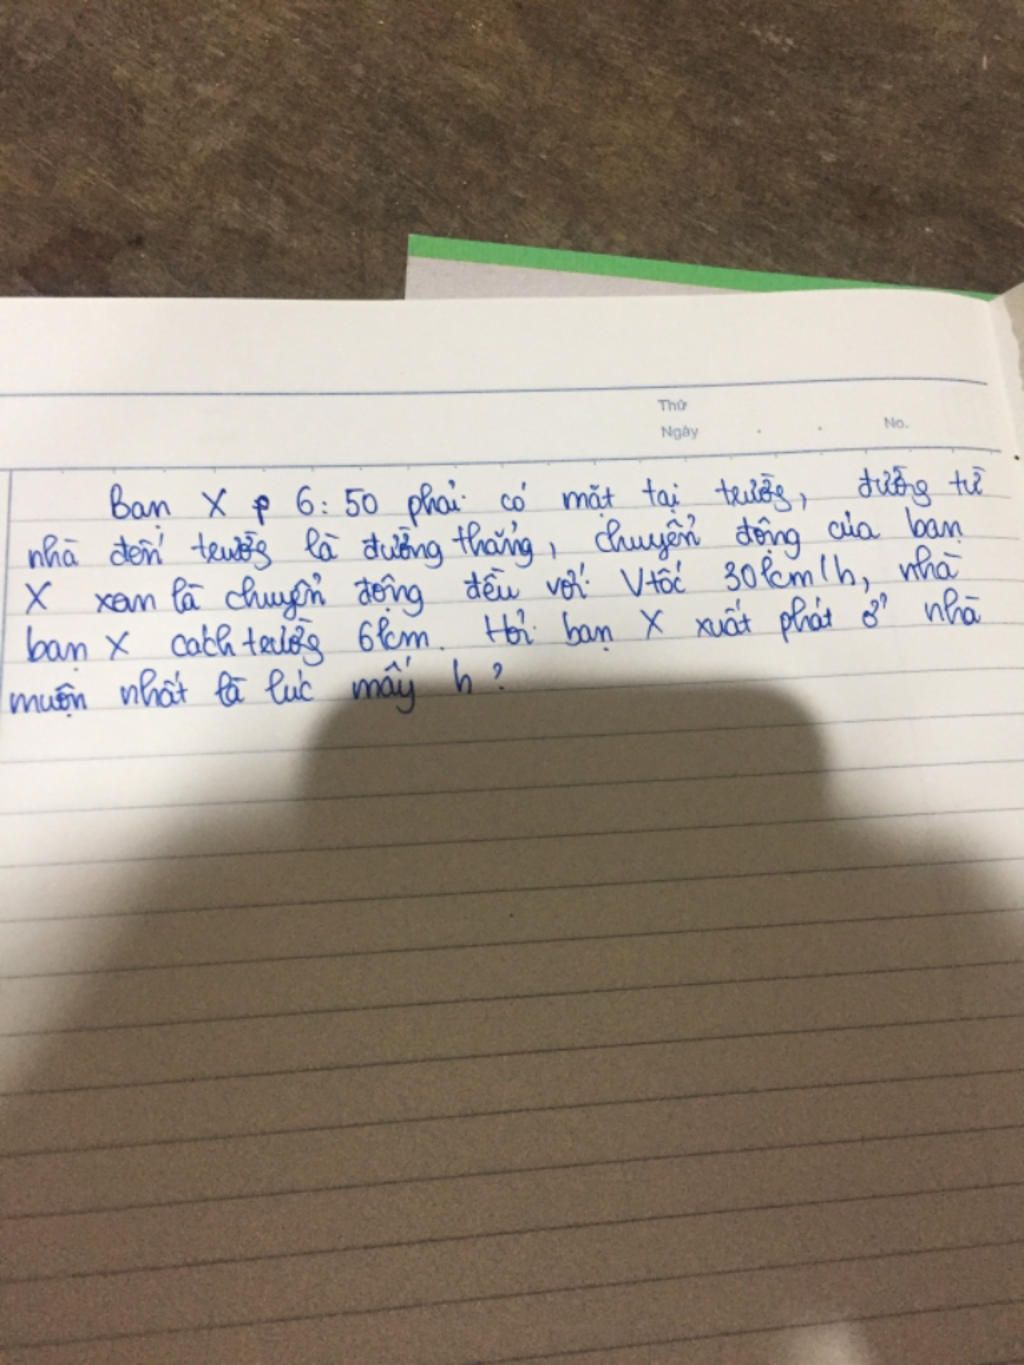 Thứ
Ngày . . No.
Bạn X p 6:50 phải có mặt tại trường, đường từ
nhà đến trường là đường thẳng, chuyển động của bạn
X xem là chuyển động đều với Vtốc 30km/h, nhà
bạn X cách trường 6km. Hỏi bạn X xuất phát ở nhà
muộn nhất là lúc mấy h?